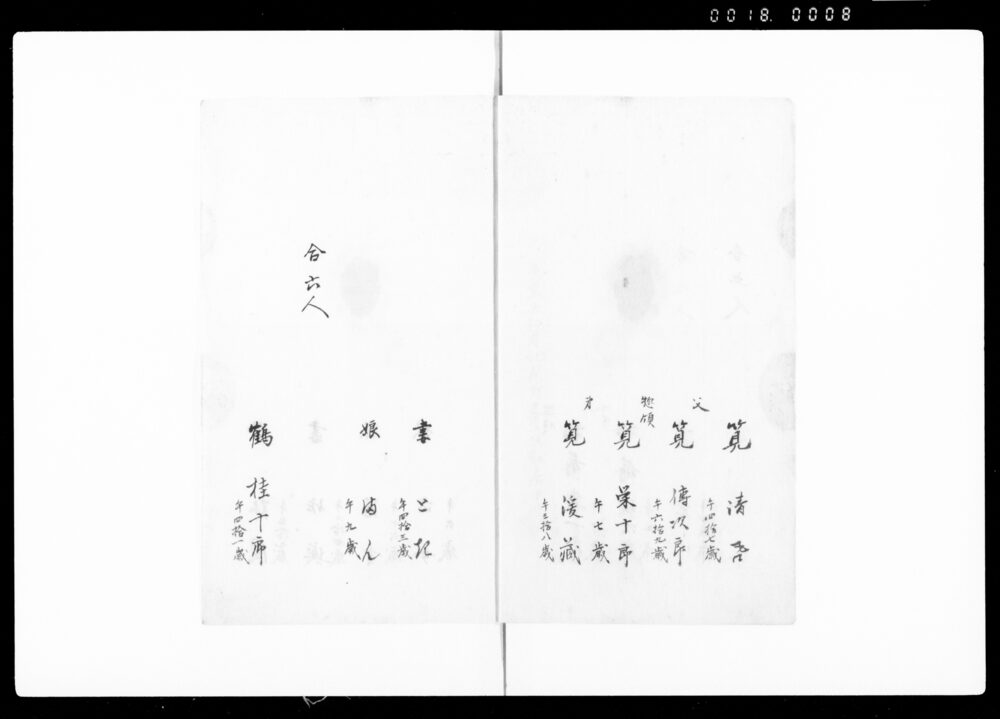 0018. 0008
筧 清吾
午四拾七歳
父
筧 傳次郎
午六拾九歳
惣領
筧 栄十郎
午七歳
弟
筧 湲藏
午三拾八歳
妻 とき
午四拾三歳
娘 满ん
午九歳
合六人
鶴 桂十郎
午四拾一歳